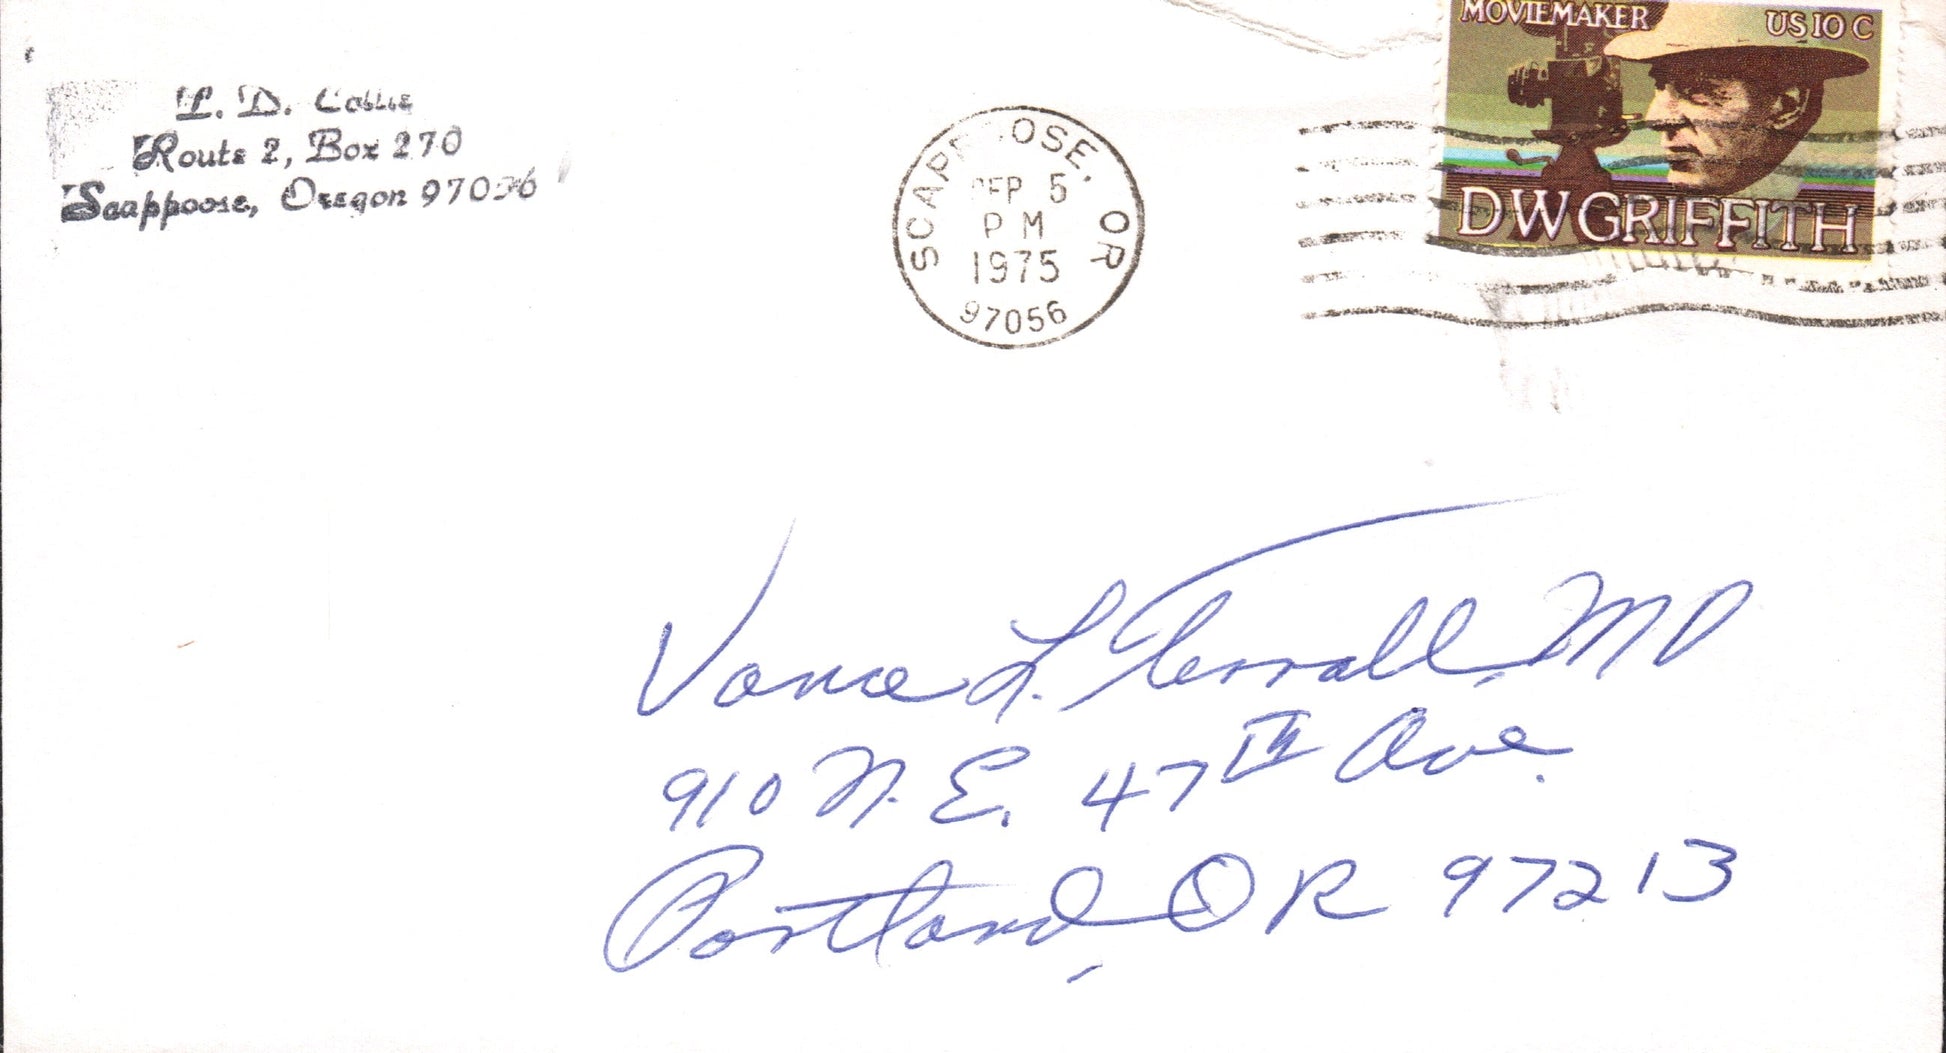 L. D. Collie
Route 2, Box 270
Scappoose, Oregon 97056
SCAPPOOSE, OR
SEP 5
PM
1975
97056
MOVIEMAKER US 10 C
DW GRIFFITH
Vance L. Terrall, MD
910 N. E. 47TH Ave.
Portland, OR 97213